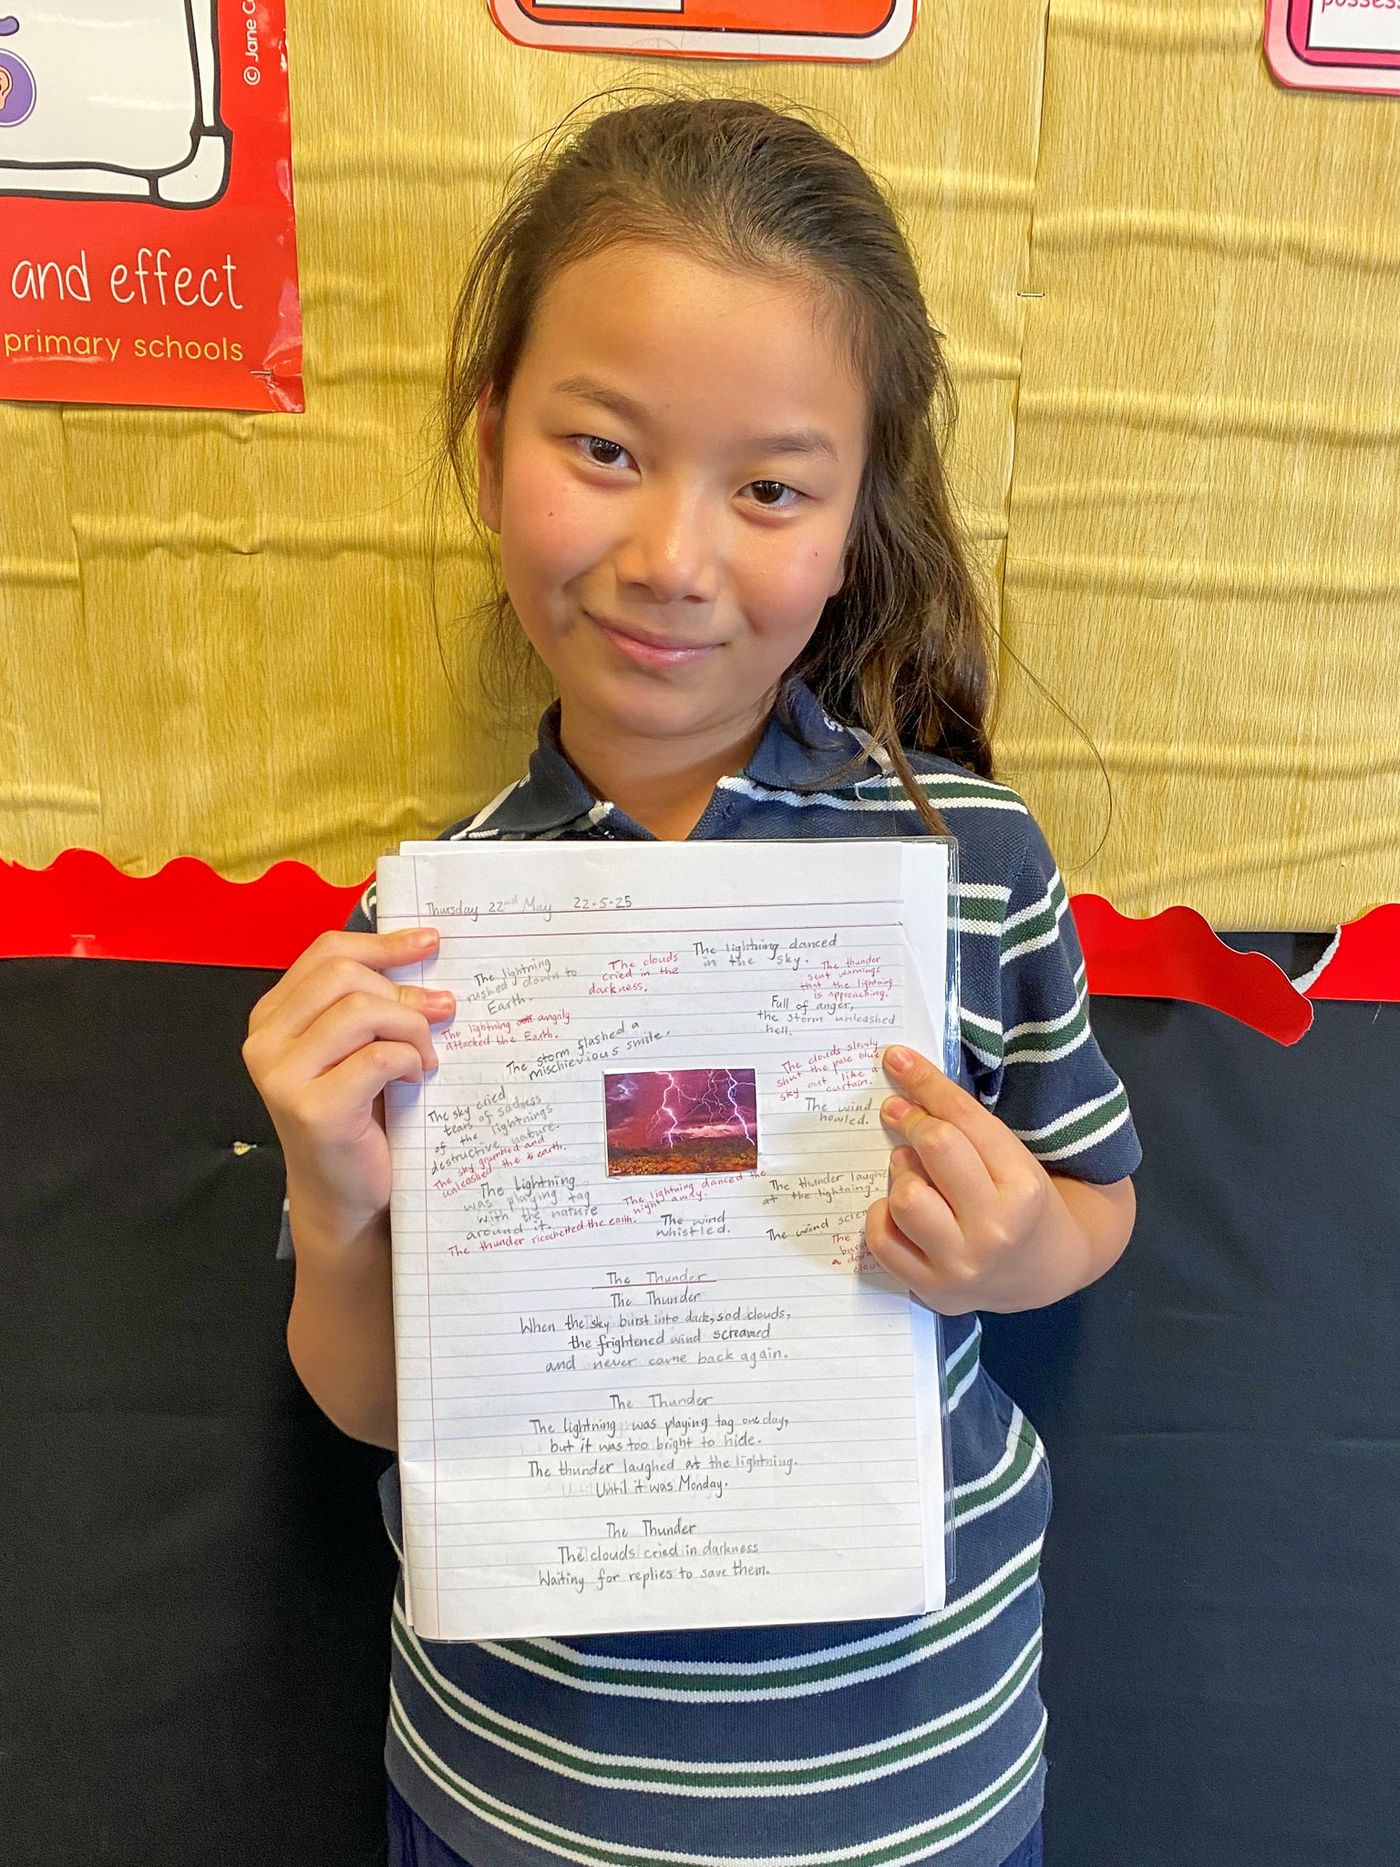 © Jane C
and effect
primary schools
possess
Thursday 22nd May 22.5.25
The lightning
rushed down to
Earth.
The clouds
cried in the
darkness.
The lightning danced
in the sky.
The thunder
sent warnings
that the lightning
is approaching.
The lightning angrily
attacked the Earth.
Full of anger,
the storm unleashed
hell.
The storm flashed a
mischievious smile.
The clouds slowly
shut the pale blue
sky out like a
curtain.
The wind
howled.
The sky cried
tears of sadness
of the lightnings
destructive nature.
The sky grumbled and
unleashed the earth.
The lightning
was playing tag
with the nature
around it.
The lightning danced the
night away.
The thunder laughe
at the lightning.
The thunder ricochetted the earth.
The wind
whistled.
The wind scre
The s
burs
a dark
clou
The Thunder
The Thunder
When the sky burst into dark, sad clouds,
the frightened wind screamed
and never came back again.
The Thunder
The lightning was playing tag one day,
but it was too bright to hide.
The thunder laughed at the lightning.
Until it was Monday.
The Thunder
The clouds cried in darkness
Waiting for replies to save them.